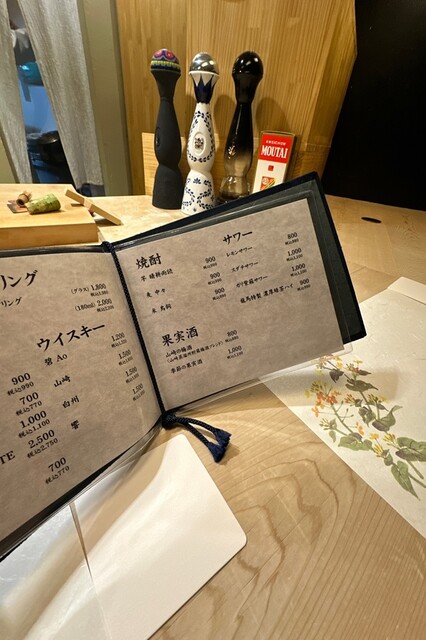 リング
リング
(グラス) 1,800
税込1,980
(180ml) 2,000
税込2,200
ウイスキー
碧 Ao
1,200
税込1,320
山崎
1,500
白州
1,500
響
1,500
900
税込990
700
税込770
1,000
税込1,100
2,500
税込2,750
TE
700
税込770
焼酎
900
税込990
麦 中々
900
税込990
900
税込990
果実酒
山崎の梅酒
800
税込880
(山崎蒸溜所貯蔵梅酒ブレンド)
季節の果実酒
1,000
税込1,100
サワー
レモンサワー
800
税込880
スダチサワー
1,000
税込1,100
ガリ紫蘇サワー
1,000
税込1,100
900
税込990
MOUTAI